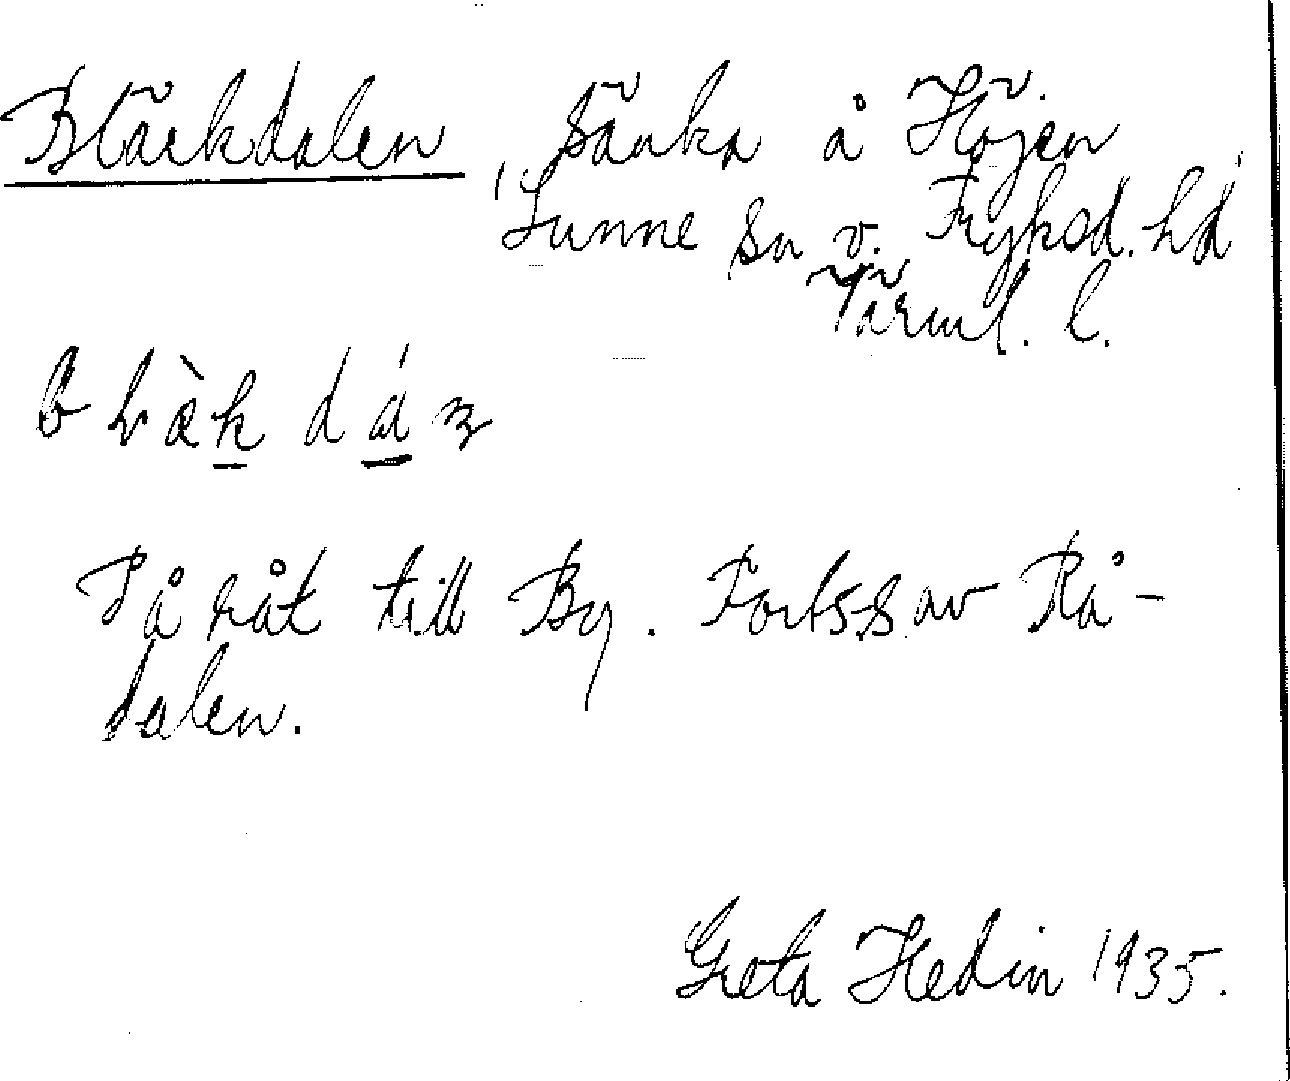 Bläckdalen, sänka å Höjen
Sunne sn v. Fryksd. hd
Värml. l.
På råt till By. Forts. av Rå-
dalen.
Greta Hedin 1935.